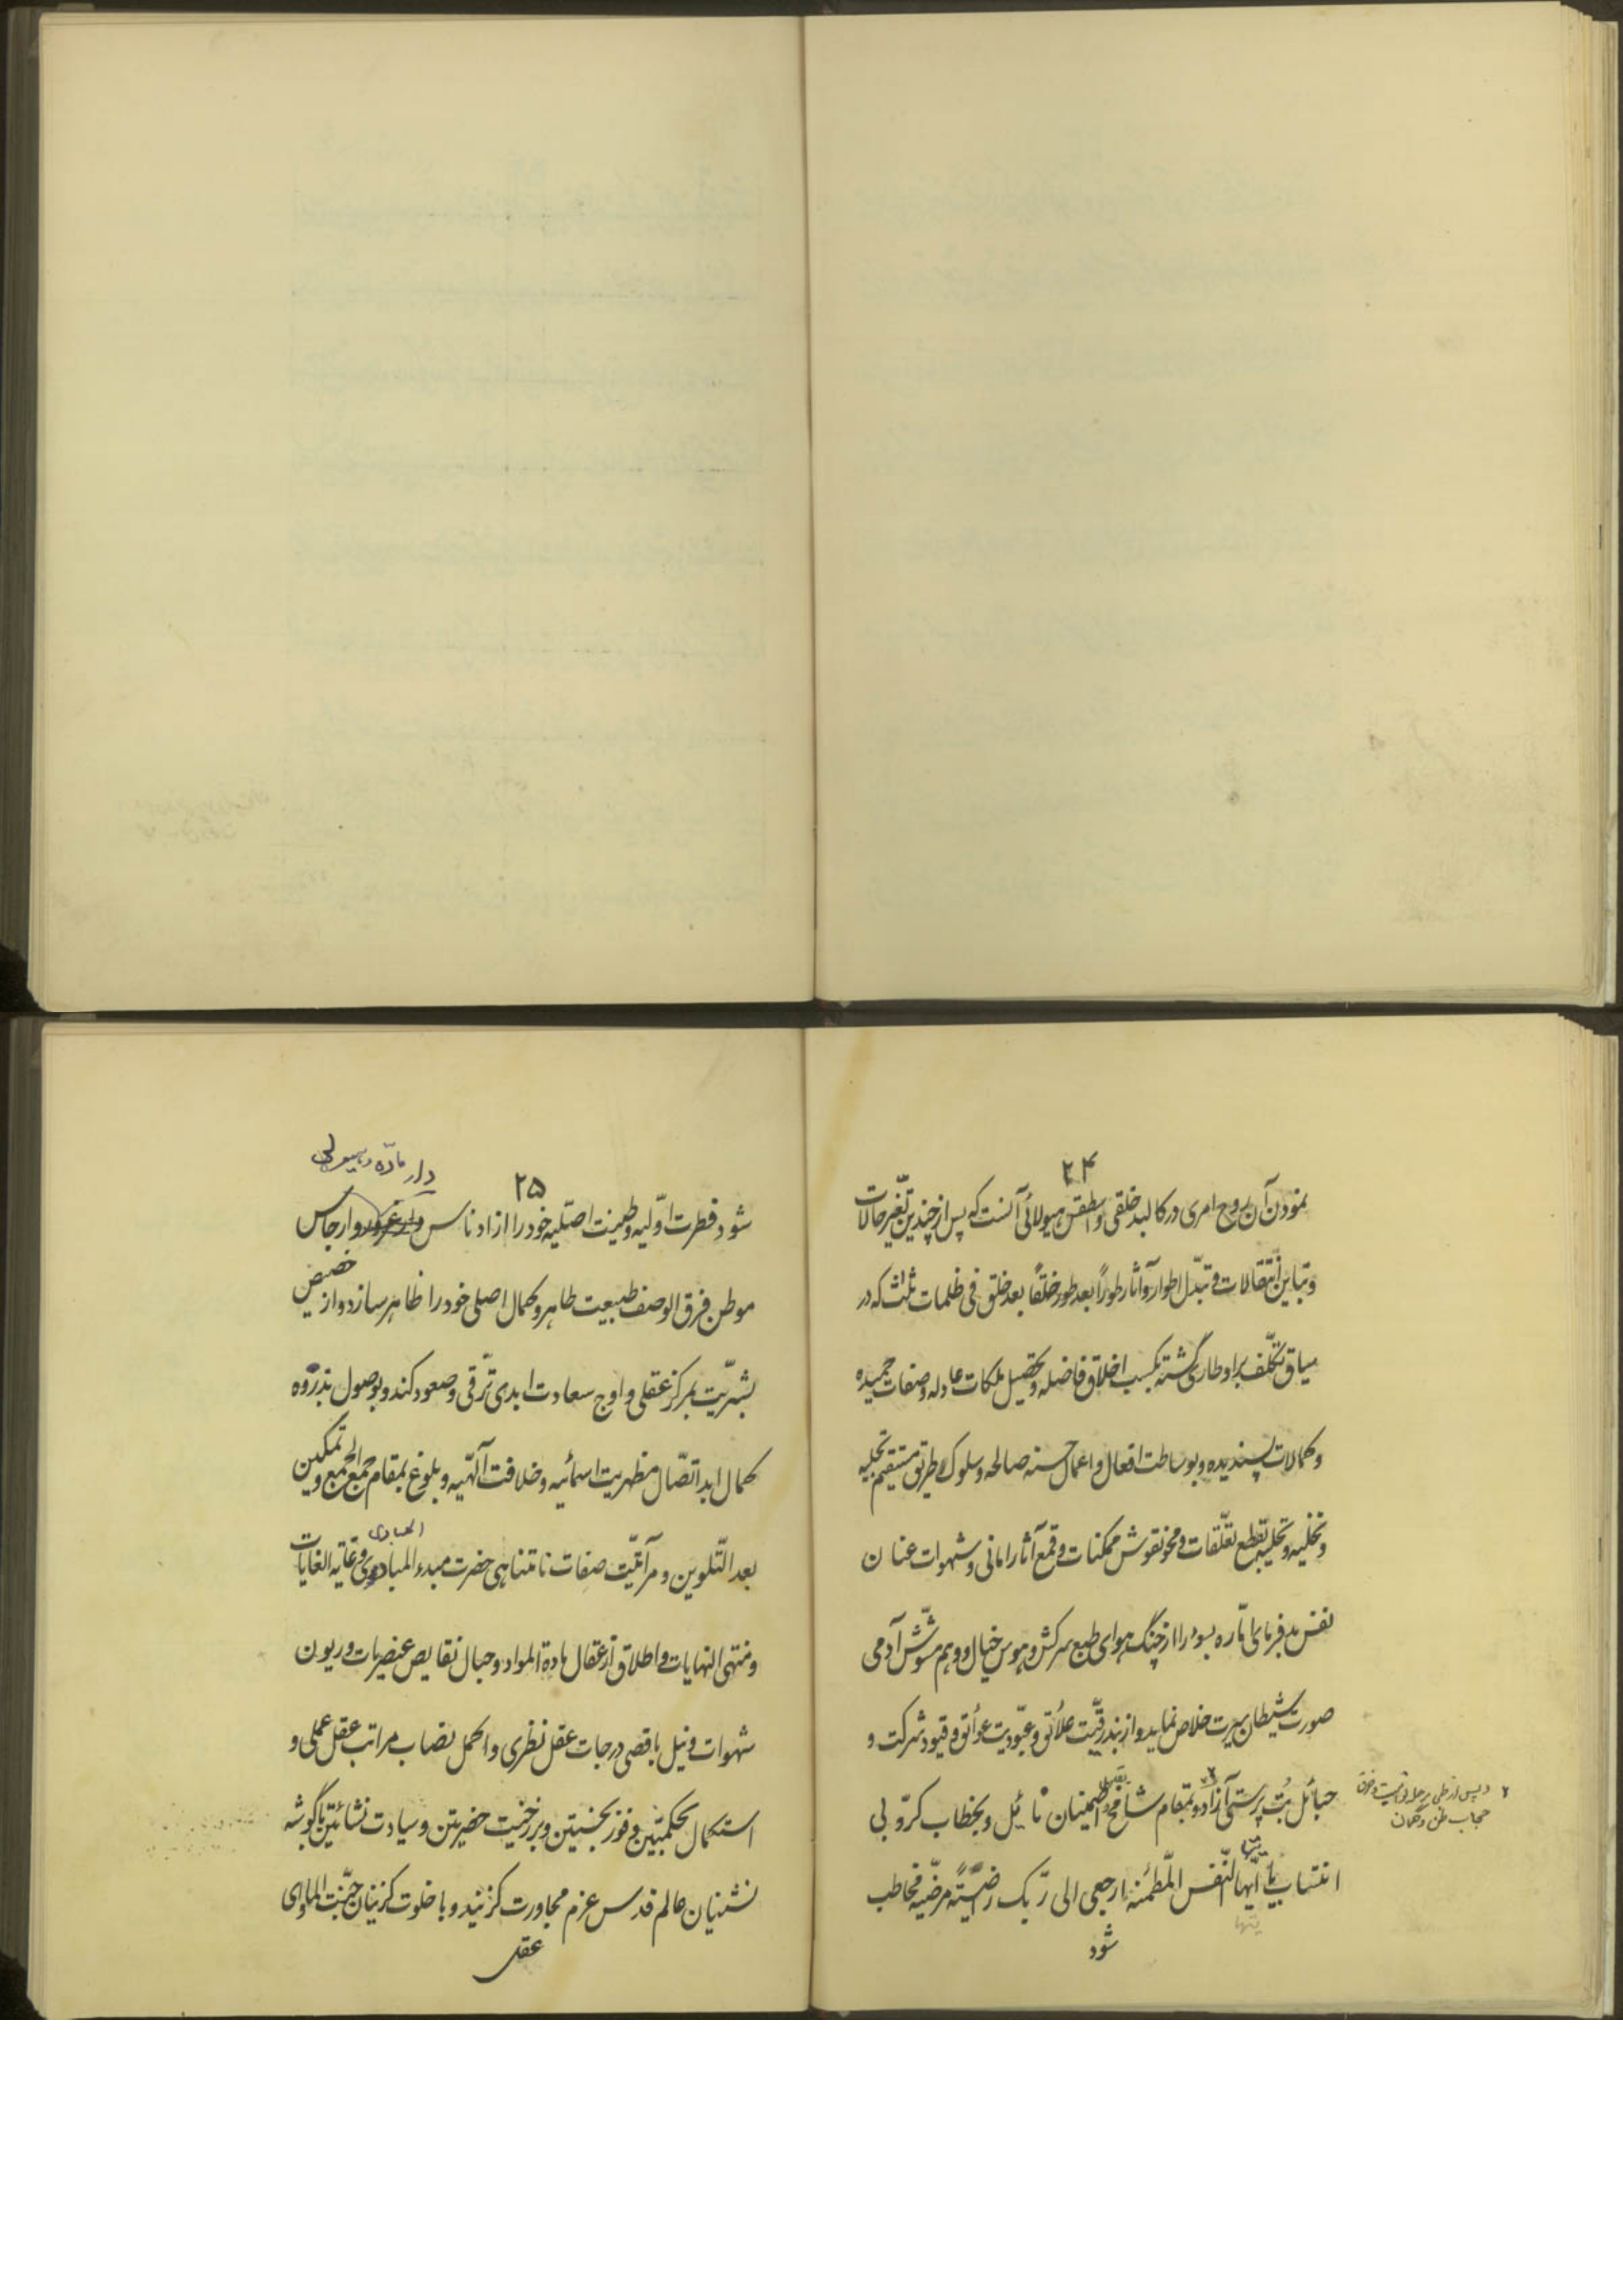 ۲۴
نمودن آن روح امری در کالبد خلقی و اسطقس هیولائی آنست که پس از چندین تغیّر حالات
و تباین انتقالات و تبدّل اطوار و آثار طوراً بعد طور خلقاً بعد خلق فی ظلمات ثلث که در
سیاق تکلّف بر او طاری گشته بکسب اخلاق فاضله و تحصیل ملکات عادله و صفات حمیده
و کمالات پسندیده و بوساطت افعال و اعمال حسنه صالحه و سلوک طریق مستقیم تجلیه
و تخلیه و تحلیه بقطع تعلّقات و محو نقوش ممکنات و قمع آثار امانی و شهوات عنان
نفس بدفرمای امّاره بسوء را از چنگ هوای طبع سرکش و هوس خیال و وهم مشوّش آدمی
صورت شیطان سیرت خلاص نماید و از بند رقیّت علائق و عبودیت عوائق و قیود شرکت و
حبائل بت پرستی آزاد و بمقام شامخ اطمینان نائل و بخطاب کرّوبی
۲ و پس از طی
حجاب ظن و گمان
انتساب یا ایّتها النّفس المطمئنه ارجعی الی ربّک راضیةً مرضیّه مخاطب
یتها
شود
۲۵
دار مادّه و هیولی
شود فطرت اوّلیه و طینت اصلیه خود را از ادناس دار غرور و ارجاس
موطن فرق الوصف طبیعت طاهر و کمال اصلی خود را ظاهر سازد و از حضیض
بشریّت بمرکز عقلی و اوج سعادت ابدی ترقّی و صعود کند و بوصول بذروه
کمال ابد اتّصال مظهریت اسمائیه و خلافت آلهیّه و بلوغ بمقام جمع الجمع و تمکین
بعد التّلوین و مرآتیّت صفات نامتناهی حضرت مبدء المبادی و غایه الغایات
المبادی
و منتهی النهایات و اطلاق از عقال مادة المواد و حبال نقایص عنصریات و ریون
شهوات و نیل باقصی درجات عقل نظری و اکمل نصاب مراتب عقل عملی و
استکمال بحکمتین و فوز بحسنیین و برزخیت حضرتین و سیادت نشأتین با گوشه
نشینان عالم قدس عزم مجاورت گزیند و با خلوت گزینان جنّت المأوای
عقل